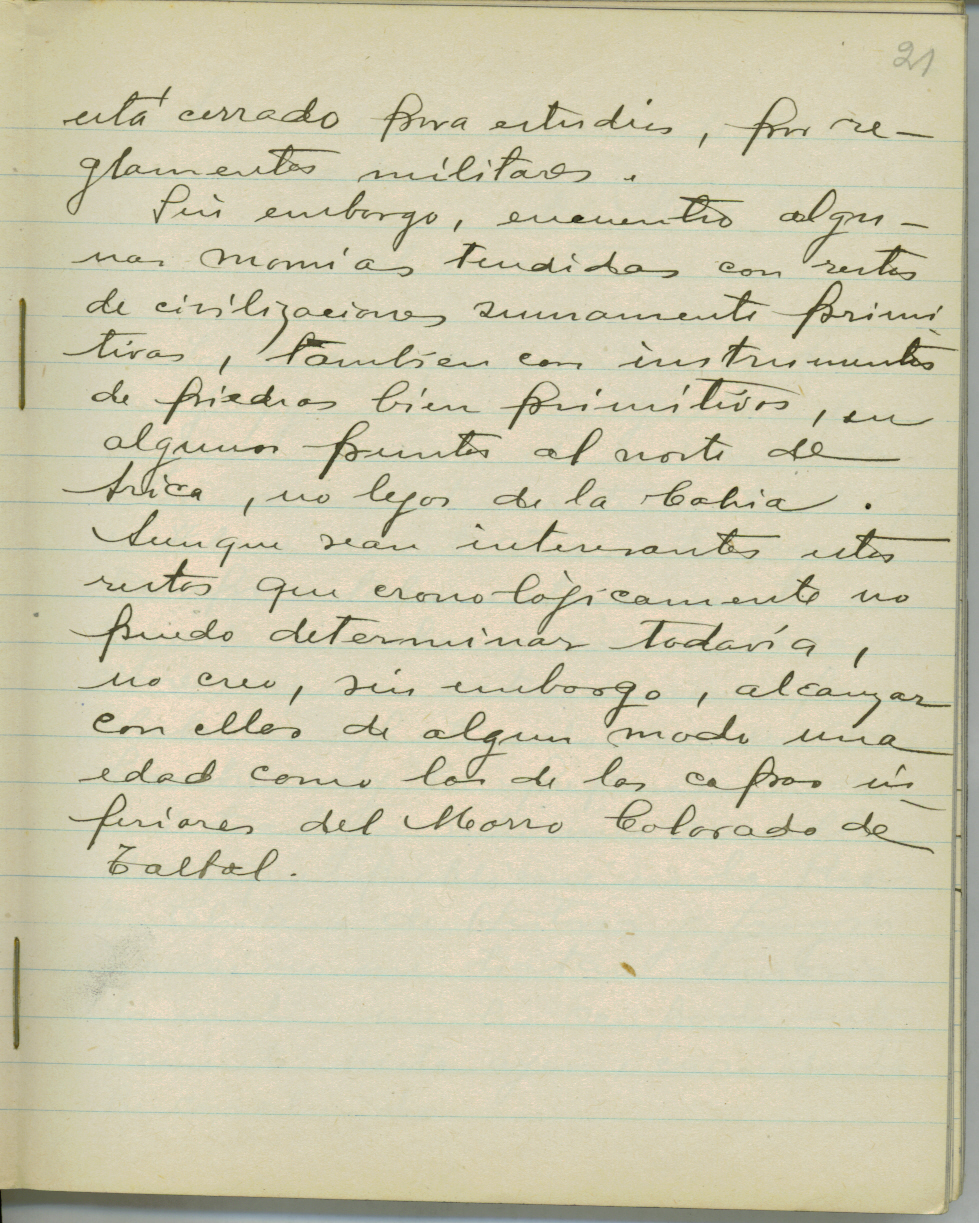 21
está cerrado para estudios, por re-
glamentos militares.
Sin embargo, encuentro algu-
nas momias tendidas con restos
de civilizaciones sumamente primi-
tivas, tambien con instrumentos
de piedras bien primitivos, en
algunos puntos al norte de
Arica, no lejos de la bahia.
Aunque sean interesantes estos
restos que cronológicamente no
puedo determinar todavía,
no creo, sin embargo, alcanzar
con ellos de algun modo una
edad como las de las capas in-
feriores del Morro Colorado de
Taltal.